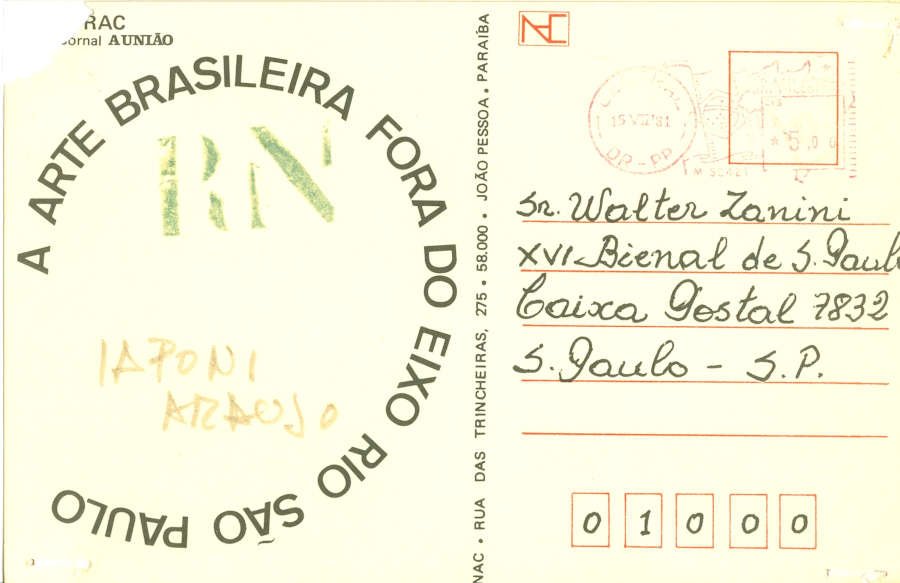 RAC
Jornal A UNIÃO
A ARTE BRASILEIRA FORA DO EIXO RIO SÃO PAULO
RN
IAPONI
ARAUJO
NAC • RUA DAS TRINCHEIRAS, 275 • 58.000 • JOÃO PESSOA, PARAÍBA
NAC
15 VII 81
DR-PP
*5,00
Sr. Walter Zanini
XVI Bienal de S. Paulo
Caixa Postal 7832
S. Paulo - S.P.
0 1 0 0 0